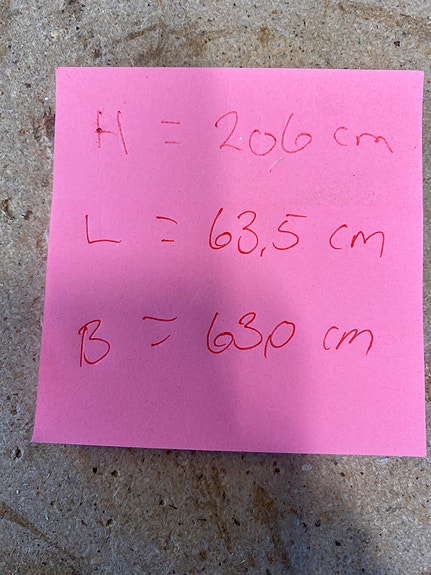 H = 206 cm
L = 63,5 cm
B = 63,0 cm